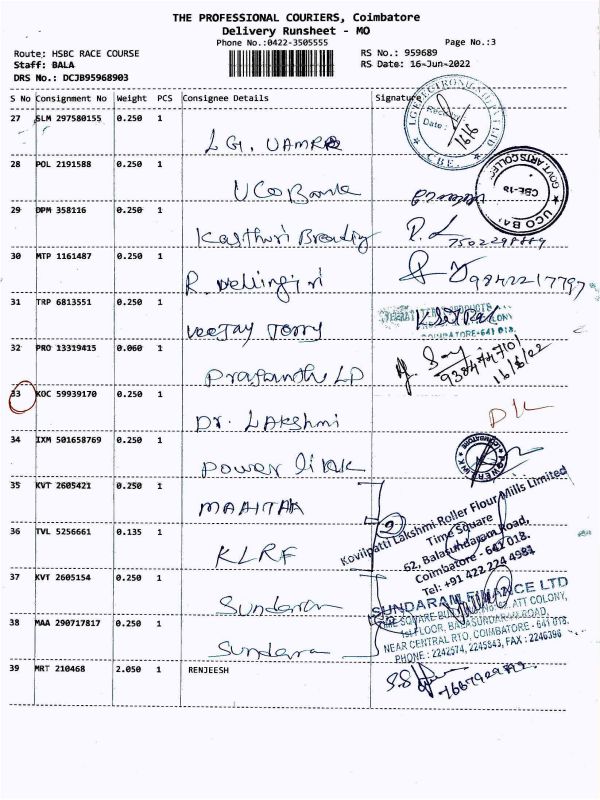 THE PROFESSIONAL COURIERS, Coimbatore
Delivery Runsheet - MO
Phone No.:0422-3505555
Page No.:3
Route: HSBC RACE COURSE
RS No.: 959689
Staff: BALA
RS Date: 16-Jun-2022
DRS No.: DCJB95968903
S No Consignment No Weight PCS Consignee Details Signature
27 SLM 297580155 0.250 1
LG. UAMRR
Date: 16/6
CBE.
28 POL 2191588 0.250 1
UCO Bank
GOVT. ARTS COLLEGE
CBE-18
UCO BA
29 DPM 358116 0.250 1
Kasthuri
30 MTP 1161487 0.250 1
R. Vellingiri
9842217797
31 TRP 6813551 0.250 1
Veejay Terry
COIMBATORE-641 018.
32 PRO 13319415 0.060 1
Prasanth LD
9384747701
16/6/22
33 KOC 59939170 0.250 1
Dr. LAKshmi
34 IXM 501658769 0.250 1
Power link
COIMBATORE
35 KVT 2605421 0.250 1
MAAITAA
2
Kovilpatti Lakshmi Roller Flour Mills Limited
Time Square
62, Balasundaram Road,
Coimbatore - 641 018.
Tel: +91 422 224 4981
36 TVL 5256661 0.135 1
KLRF
37 KVT 2605154 0.250 1
Sundaram
SUNDARAM FINANCE LTD
TIME SQUARE BUILDING, ATT COLONY,
1st FLOOR, BALASUNDARAM ROAD,
NEAR CENTRAL RTO, COIMBATORE - 641 018.
PHONE : 2242574, 2245843, FAX : 2246398
38 MAA 290717817 0.250 1
Sundaram
39 MRT 210468 2.050 1 RENJEESH